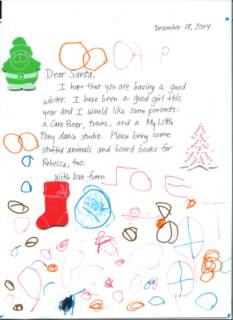 December 18, 2004
Dear Santa,
I hope that you are having a good
winter. I have been a good girl this
year and I would like some presents:
a Care Bear, trains, and a My Little
Pony dance studio. Please bring some
stuffed animals and board books for
Rebecca, too.
With love from
ZOE